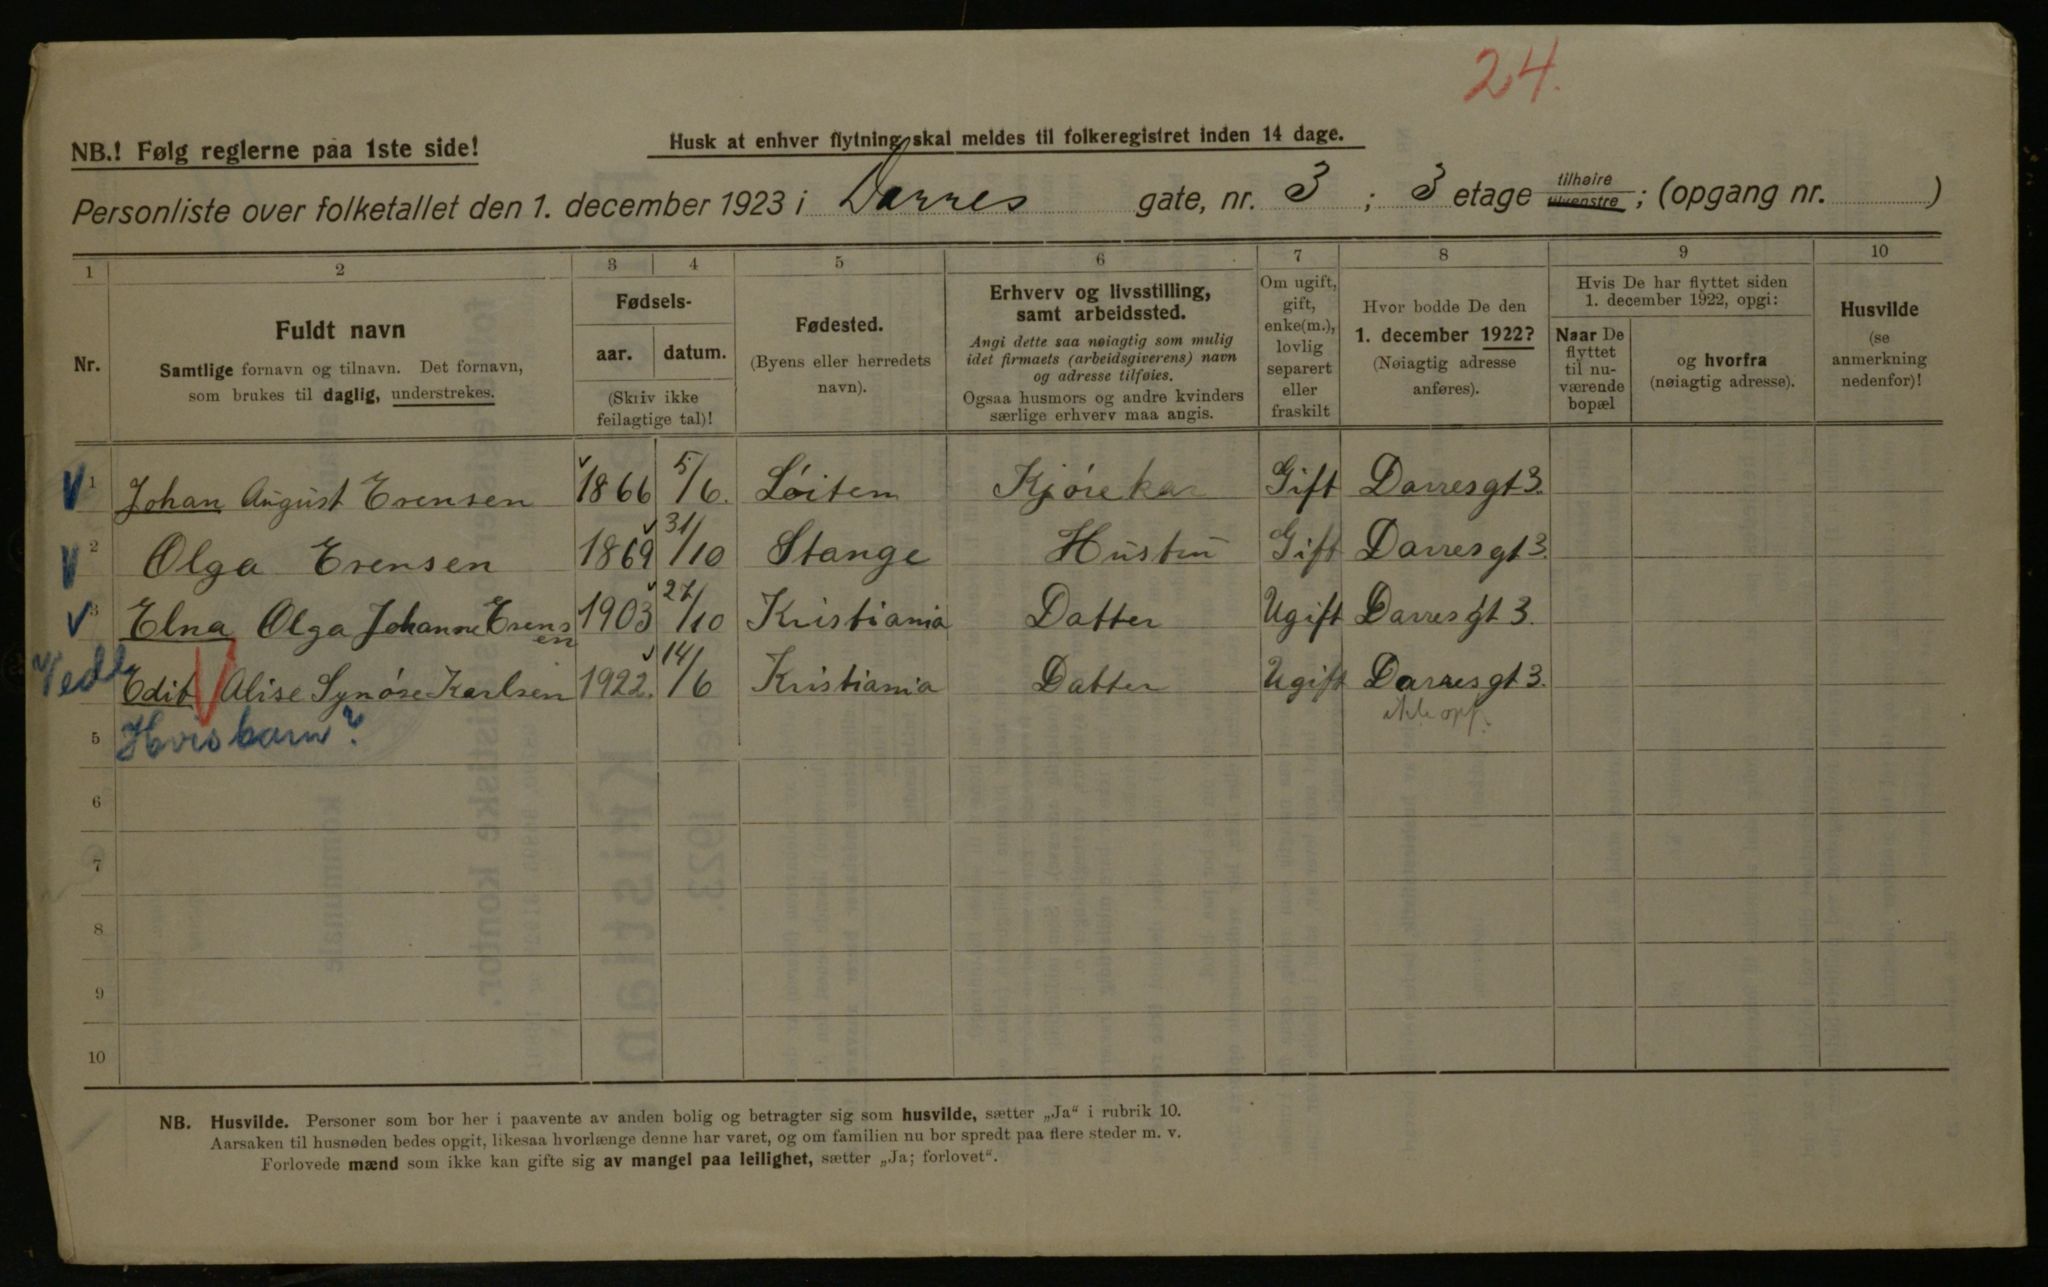 24.
NB.! Følg reglerne paa 1ste side!
Husk at enhver flytning skal meldes til folkeregistret inden 14 dage.
Personliste over folketallet den 1. december 1923 i Darres gate, nr. 3 ; 3 etage tilhøire tilvenstre ; (opgang nr. )
1 2 3 4 5 6 7 8 9 10
Nr.
Fuldt navn
Samtlige fornavn og tilnavn. Det fornavn,
som brukes til daglig, understrekes.
Fødsels-
aar. datum.
(Skriv ikke
feilagtige tal)!
Fødested.
(Byens eller herredets
navn).
Erhverv og livsstilling,
samt arbeidssted.
Angi dette saa nøiagtig som mulig
idet firmaets (arbeidsgiverens) navn
og adresse tilføies.
Ogsaa husmors og andre kvinders
særlige erhverv maa angis.
Om ugift,
gift,
enke(m.),
lovlig
separert
eller
fraskilt
Hvor bodde De den
1. december 1922?
(Nøiagtig adresse
anføres).
Hvis De har flyttet siden
1. december 1922, opgi:
Naar De
flyttet
til nu-
værende
bopæl
og hvorfra
(nøiagtig adresse).
Husvilde
(se
anmerkning
nedenfor)!
1 Johan August Erensen 1866 5/6. Løiten Kjørekar Gift Darresgt 3.
2 Olga Erensen 1869 31/10 Stange Hustru Gift Darresgt 3.
3 Elna Olga Johanne Erensen 1903 27/10 Kristiania Datter Ugift Darresgt 3.
Edit Alise Synøse Karlsen 1922. 14/6 Kristiania Datter Ugift Darresgt 3.
ikke opf.
5 Hvis barn?
6
7
8
9
10
NB. Husvilde. Personer som bor her i paavente av anden bolig og betragter sig som husvilde, sætter „Ja“ i rubrik 10.
Aarsaken til husnøden bedes opgit, likesaa hvorlænge denne har varet, og om familien nu bor spredt paa flere steder m. v.
Forlovede mænd som ikke kan gifte sig av mangel paa leilighet, sætter „Ja; forlovet“.